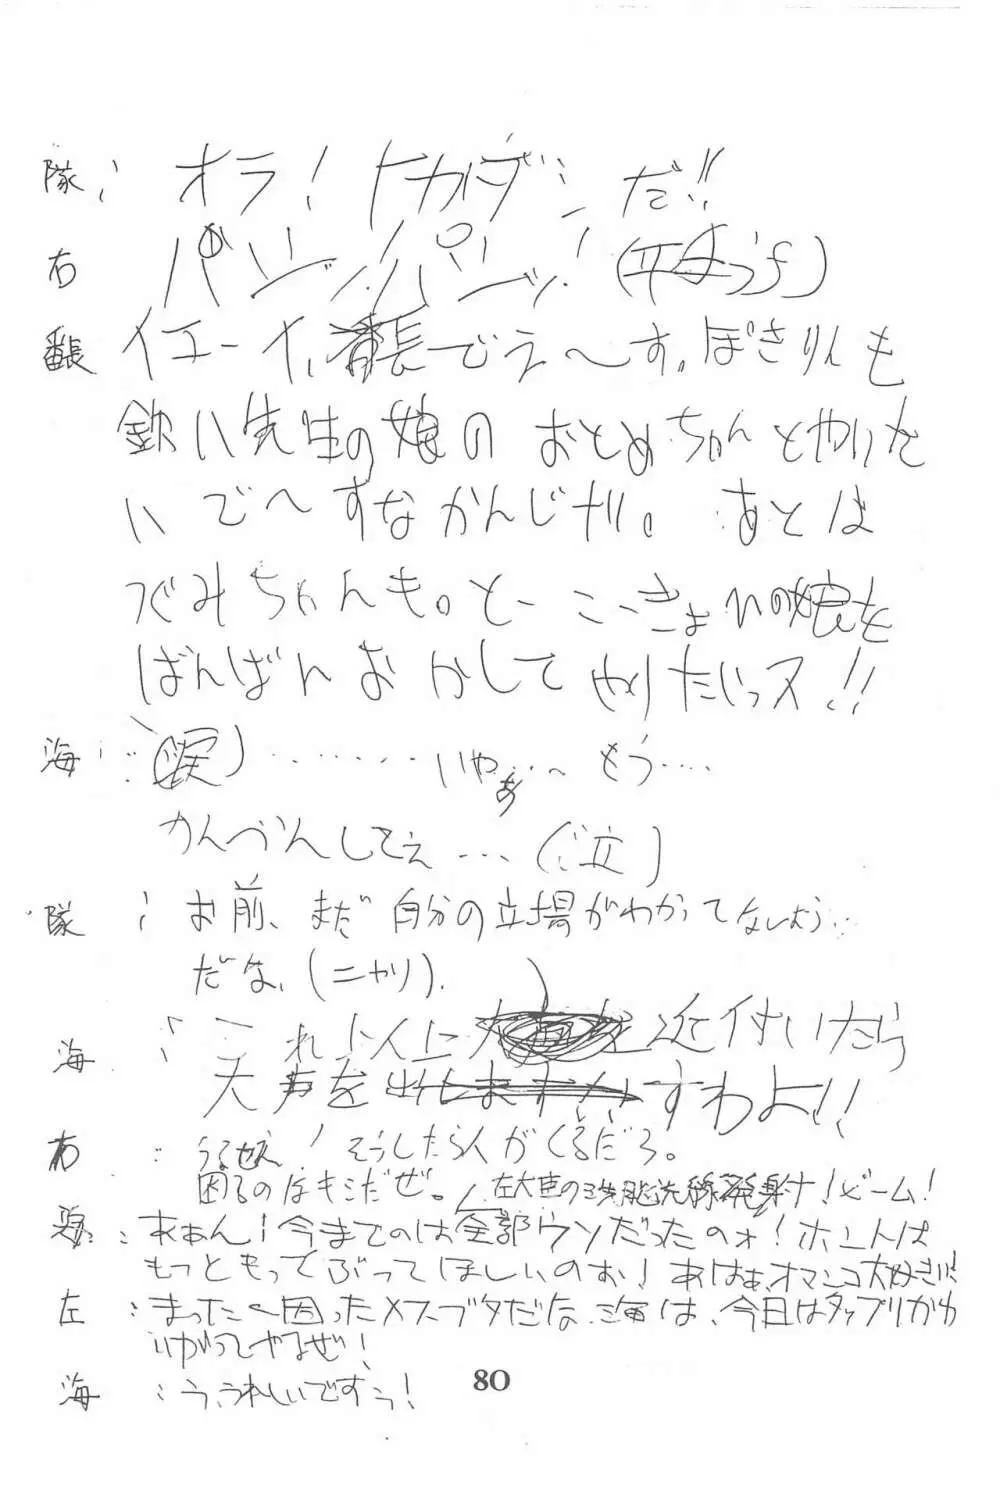 隊: オラ!トカゲ だ!!
右 パンッ!パーンッ!
番長 イエーイ、番長でえ〜す。ぽきりんも
欽八先生の娘のおとめちゃんとやりた
いで〜すなかんじ 。あとは
つぐみちゃんも。 の娘を
ばんばんおかしてやりたいっス!!
海: (涙)........いやぁ...〜もう....
かんべんしてえ...(泣)
隊: お前、まだ自分の立場がわかってないよう..
だな、(ニヤリ).
海: これ以上 近付いたら
大声を出しますわよ!!
右: うるせえ!そうしたら人がくるだろ。
困るのはキミだぜ。左大臣の洗脳光線発射ナ!ビーム!
海: あぁん!今までのは全部ウソだったのォ!ホントは
もっともってぶってほしいのお!あはぁ、オマンコ大好きい!
左: まった〜困ったメスブタだな、海は、今日はタップリかわ
いがってやるぜ!
海: う、うれしいですぅ!
80